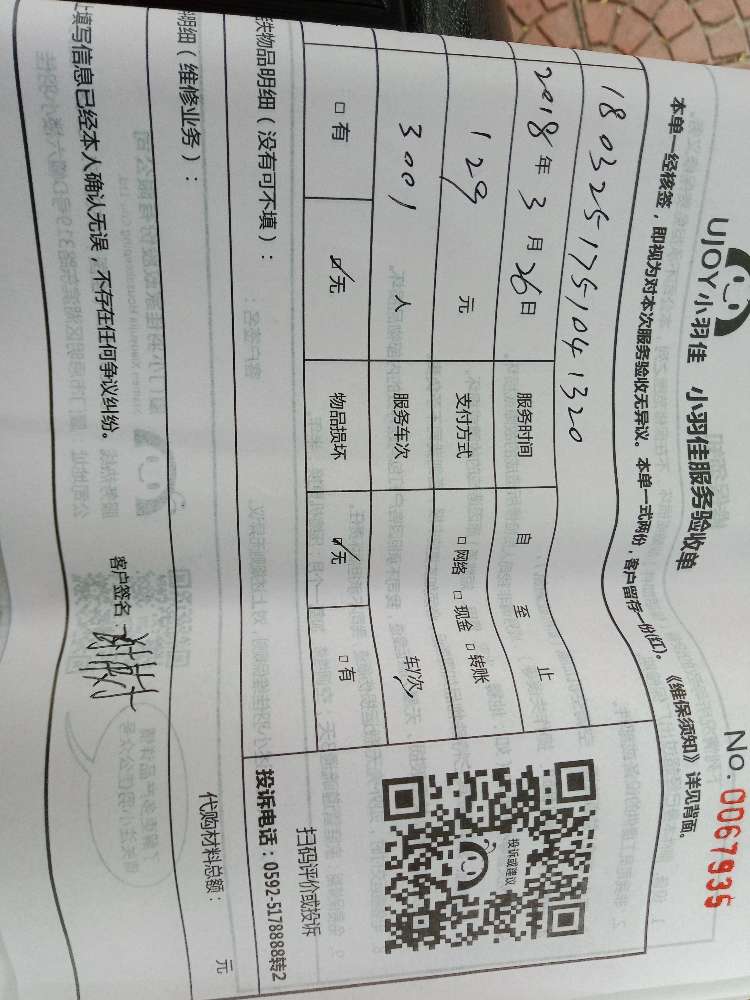 No. 0067935
UJOY小羽佳 小羽佳服务验收单
本单一经核签，即视为对本次服务验收无异议。本单一式两份，客户留存一份(红)。《维保须知》详见背面。
1803251751041320
2018年3月26日 服务时间 自 至 止
129 元 支付方式 □网络 □现金 □转账
3001 人 服务车次 车/次
□有 ☑无 物品损坏 ☑无 □有
投诉或建议
扫码评价或投诉
投诉电话：0592-5178888转2
物品明细（没有可不填）：
明细（维修业务）：
代购材料总额： 元
填写信息已经本人确认无误，不存在任何争议纠纷。 客户签名